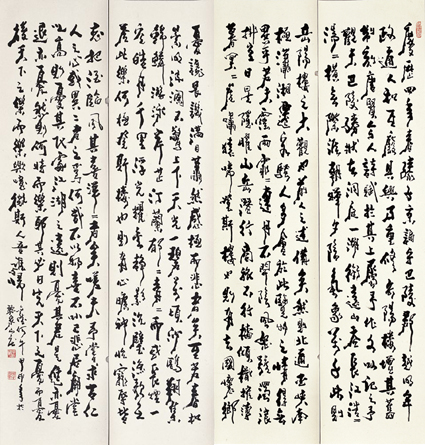 慶曆四年春滕子京謫守巴陵郡越明年
政通人和百廢具興乃重修岳陽樓增其舊
制刻唐賢今人詩賦於其上屬予作文以記之予
觀夫巴陵勝狀在洞庭一湖銜遠山吞長江浩浩
湯湯橫無際涯朝暉夕陰氣象萬千此則
岳陽樓之大觀也前人之述備矣然則北通巫峽南
極瀟湘遷客騷人多會於此覽物之情得無
異乎若夫霪雨霏霏連月不開陰風怒號濁浪
排空日星隱曜山岳潛形商旅不行檣傾楫摧
薄暮冥冥虎嘯猿啼登斯樓也則有去國懷鄉
憂讒畏譏滿目蕭然感極而悲者矣至若春和
景明波瀾不驚上下天光一碧萬頃沙鷗翔集
錦鱗游泳岸芷汀蘭郁郁青青而或長煙一
空皓月千里浮光耀金靜影沉璧漁歌互
答此樂何極登斯樓也則有心曠神怡寵辱皆
忘把酒臨風其喜洋洋者矣嗟夫予嘗求古仁
人之心或異二者之為何哉不以物喜不以己悲居廟堂
之高則憂其民處江湖之遠則憂其君是進亦憂
退亦憂然則何時而樂耶其必曰先天下之憂而憂
後天下之樂而樂歟噫微斯人吾誰與歸